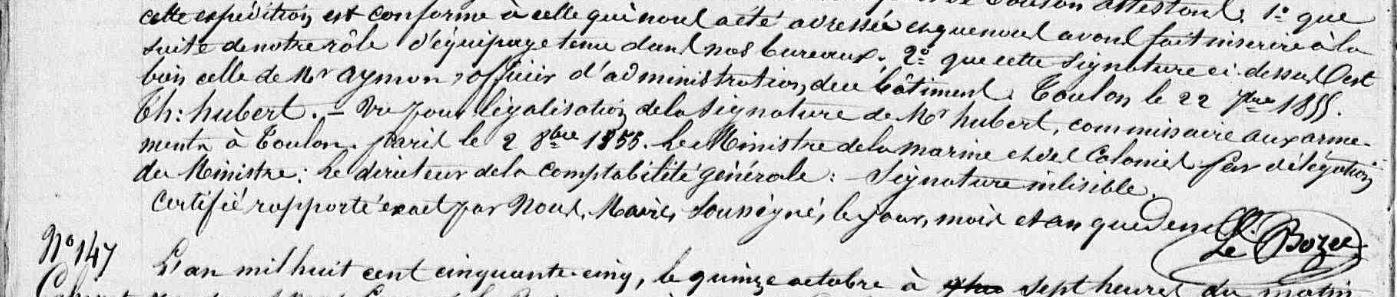 de Toulon attestons, 1° que
cette expédition est conforme à celle qui nous a été adressée et que nous avons fait inscrire à la
suite de notre rôle d'équipage tenu dans nos bureaux; 2° que cette signature ci-dessus est
bien celle de Mr Aymon, officier d'administration du bâtiment. Toulon le 22 7bre 1855.
Th: hubert. – Vu pour légalisation de la signature de Mr hubert, commissaire aux arme-
ments à Toulon. Paris le 2 8bre 1855. Le Ministre de la marine et des Colonies par délégation
du Ministre: Le directeur de la comptabilité générale: – Signature inlisible.
Certifié rapporté exact par Nous, Maire, Soussigné, le jour, mois et an que Dessus.
Le Bozec
N° 147
L'an mil huit cent cinquante-cinq, le quinze octobre à sept heures du matin